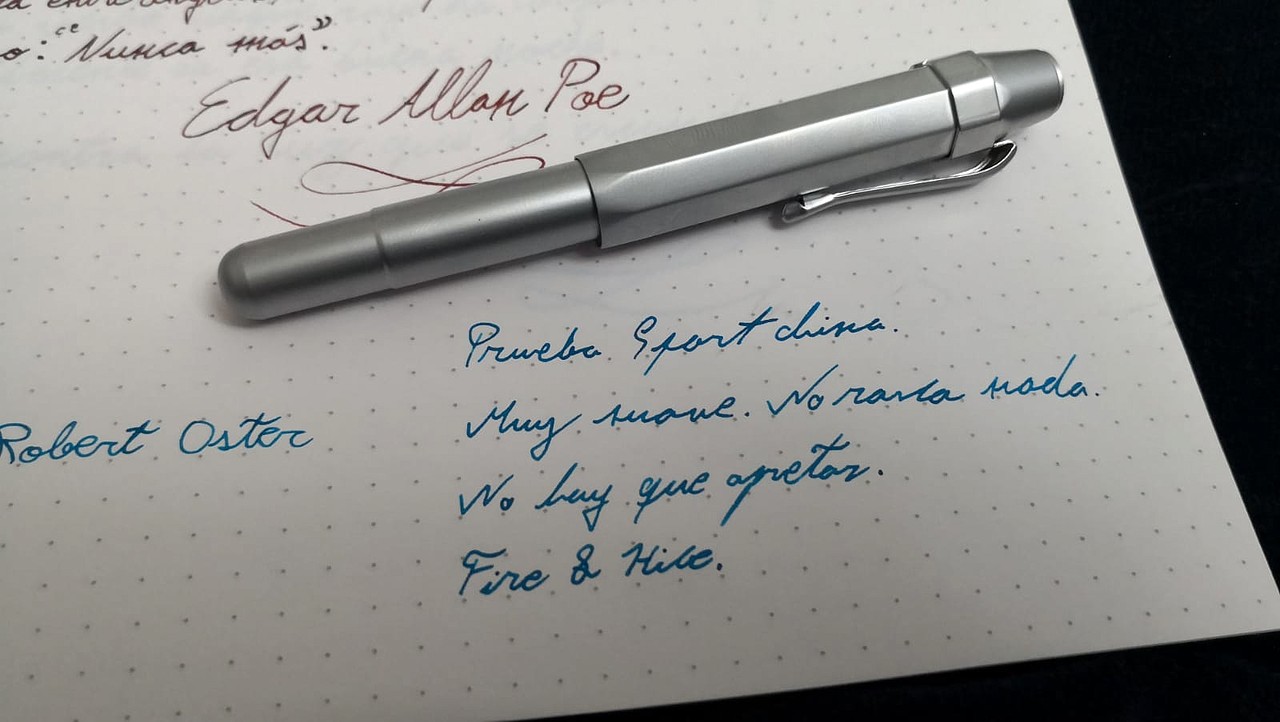 o: “Nunca más”.
Edgar Allan Poe
Prueba Sport china.
Muy suave. No rasca nada.
Robert Oster
No hay que apretar.
Fire & Hice.